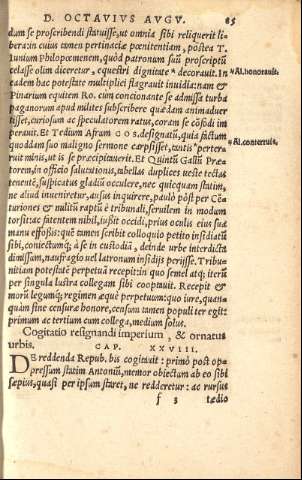 D. OCTAVIVS AVGV. 85
dum se proscribendi statuisse, ut omnia sibi reliquerit li-
bera: in cuius tamen pertinaciæ pœnitentiam, postea T.
Iunium Philopœmenem, quòd patronum suũ proscriptũ
celasse olim diceretur, equestri dignitate * decorauit. In
*Al. honorauit.
eadem hac potestate multiplici flagrauit inuidia: nam &
Pinarium equitem Ro. cum concionante se admissa turba
paganorum apud milites subscribere quædam animaduer
tisset, curiosum ac speculatorem ratus, coram se cõfodi im
perauit. Et Tedium Afrum COS. designatũ, quia factum
quoddam suo maligno sermone carpsisset, tantis * perter-
*Al. conterruit.
ruit minis, ut is se præcipitauerit. Et Quintũ Galliũ Præ
torem, in officio salutationis, tabellas duplices ueste tectas
tenentẽ, suspicatus gladiũ occulere, nec quicquam statim,
ne aliud inueniretur, ausus inquirere, paulò pòst per Cẽ-
turiones & milites raptũ è tribunali, seruilem in modum
torsit: ac fatentem nihil, iußit occidi, prius oculis eius sua
manu effoßis: quẽ tamen scribit colloquio petito insidiatũ
sibi, coniectumq; à se in custodiã, deinde urbe interdicta
dimissum, naufragio uel latronum insidijs perijsse. Tribu-
nitiam potestatẽ perpetuã recepit: in quo semel atq; iterũ
per singula lustra collegam sibi cooptauit. Recepit &
morũ legumq; regimen æquè perpetuum: quo iure, quan-
quàm sine censuræ honore, censum tamen populi ter egit:
primum ac tertium cum collega, medium solus.
Cogitatio resignandi imperium, & ornatus
urbis. CAP. XXVIII.
DE reddenda Repub. bis cogitauit: primò post op-
pressum statim Antoniũ, memor obiectum ab eo sibi
sæpius, quasi per ipsum staret, ne redderetur: ac rursus
f 3 tædio